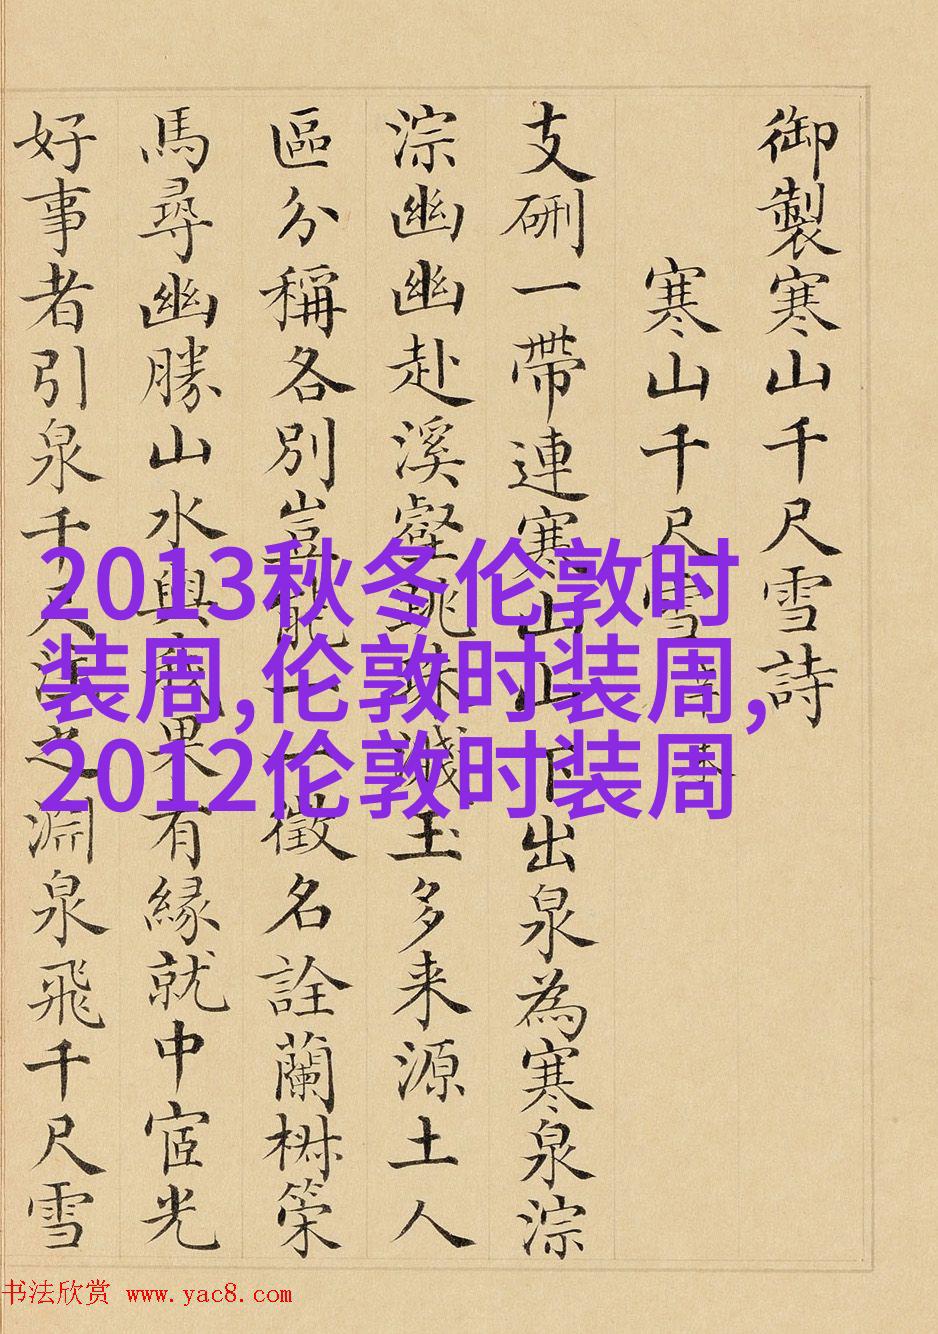 御製寒山千尺雪詩
寒山千尺雪
支硎一帶連寒山山下出泉為寒泉淙
淙幽幽赴溪壑跳珠濺玉多來源土人
區分稱各別豈能一一徵名詮蘭椒策
馬尋幽勝山水與我果有緣就中宦光
好事者引泉千尺注之淵泉飛千尺雪
2013秋冬伦敦时
装周,伦敦时装周,
2012伦敦时装周
书法欣赏 www.yac8.com